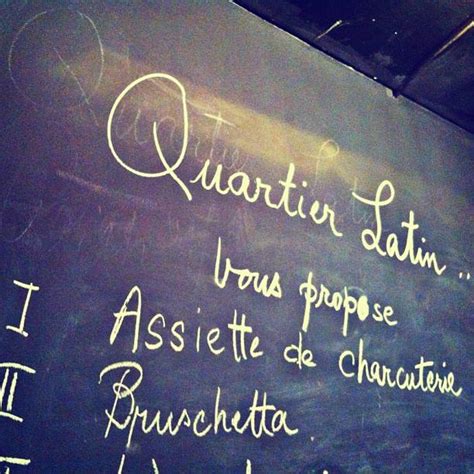 Quartier Latin..
vous propose
I Assiette de charcuterie
II Bruschetta